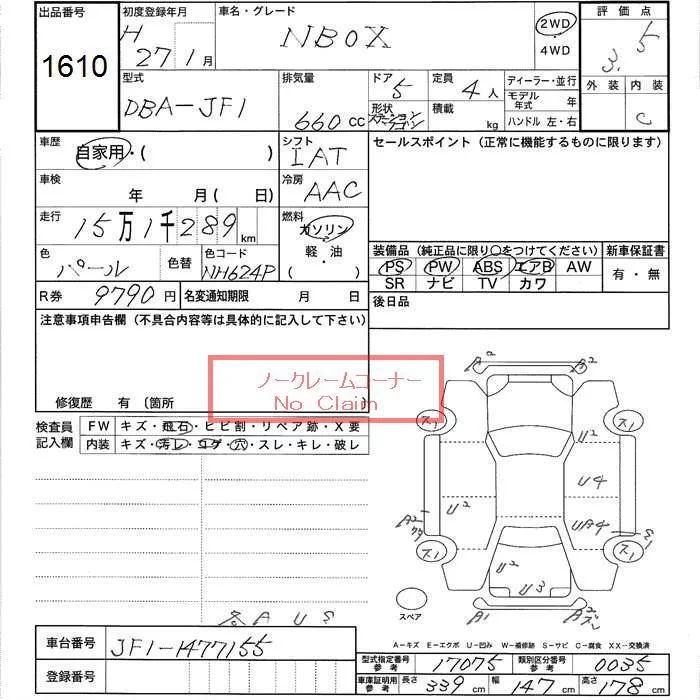 出品番号
1610
初度登録年月
H 27 1月
車名・グレード
NBOX
2WD
4WD
評価点
3.5
外装 内装
C
型式
DBA-JF1
排気量
660 CC
ドア
5
形状
ステーションワゴン
定員
4人
積載
kg
ディーラー・並行
モデル年式 年
ハンドル 左・右
車歴
自家用・( )
シフト
IAT
車検
年 月( 日)
冷房
AAC
走行
15万1千289km
燃料
ガソリン
軽・油
( )
色
パール
色替
色コード
NH624P
R券 9790円
名変通知期限 月 日
セールスポイント(正常に機能するものに限ります)
装備品(純正品に限り○をつけてください)
新車保証書
PS PW ABS エアB AW
SR ナビ TV カワ
有・無
後日品
注意事項申告欄(不具合内容等は具体的に記入して下さい)
ノークレームコーナー
No Claim
修復歴 有〔箇所
検査員記入欄
FW キズ・飛石・ヒビ割・リペア跡・X要
内装 キズ・汚レ・コゲ・穴・スレ・キレ・破レ
A2
ス1 ス1
U2
U4
U2
A2
UA4
ス1 ス1
U2
U3
A1
A2
スペア
各AUE
A-キズ E-エクボ U-凹み W-補修跡 S-サビ C-腐食 XX-交換済
車台番号 JF1-1477155
登録番号
型式指定番号参考 17075 類別区分番号参考 0035
車庫証明用参考 長さ 339cm 幅 147cm 高さ 178cm